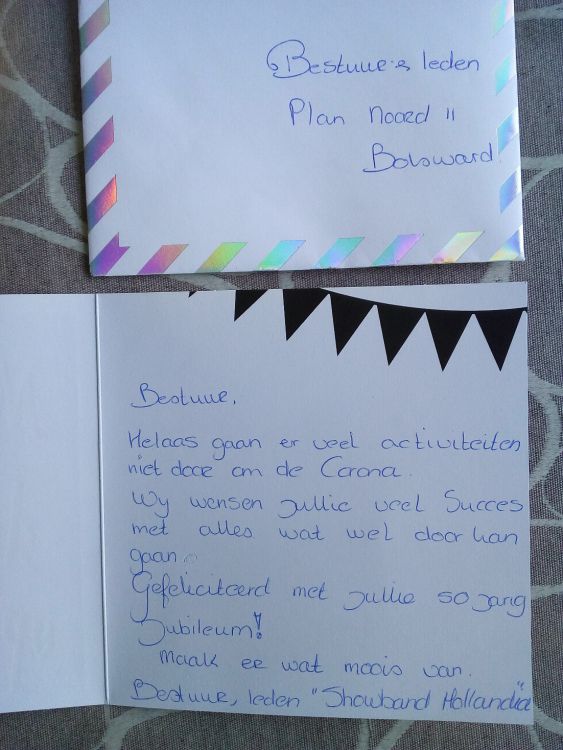 Bestuurs leden
Plan Noord 11
Bolsward
Bestuur,
Helaas gaan er veel activiteiten
niet door om de Corona.
Wij wensen jullie veel Succes
met alles wat wel door kan
gaan.
Gefeliciteerd met jullie 50 jarig
Jubileum!
Maak er wat moois van.
Bestuur, leden "Showband Hollandia"